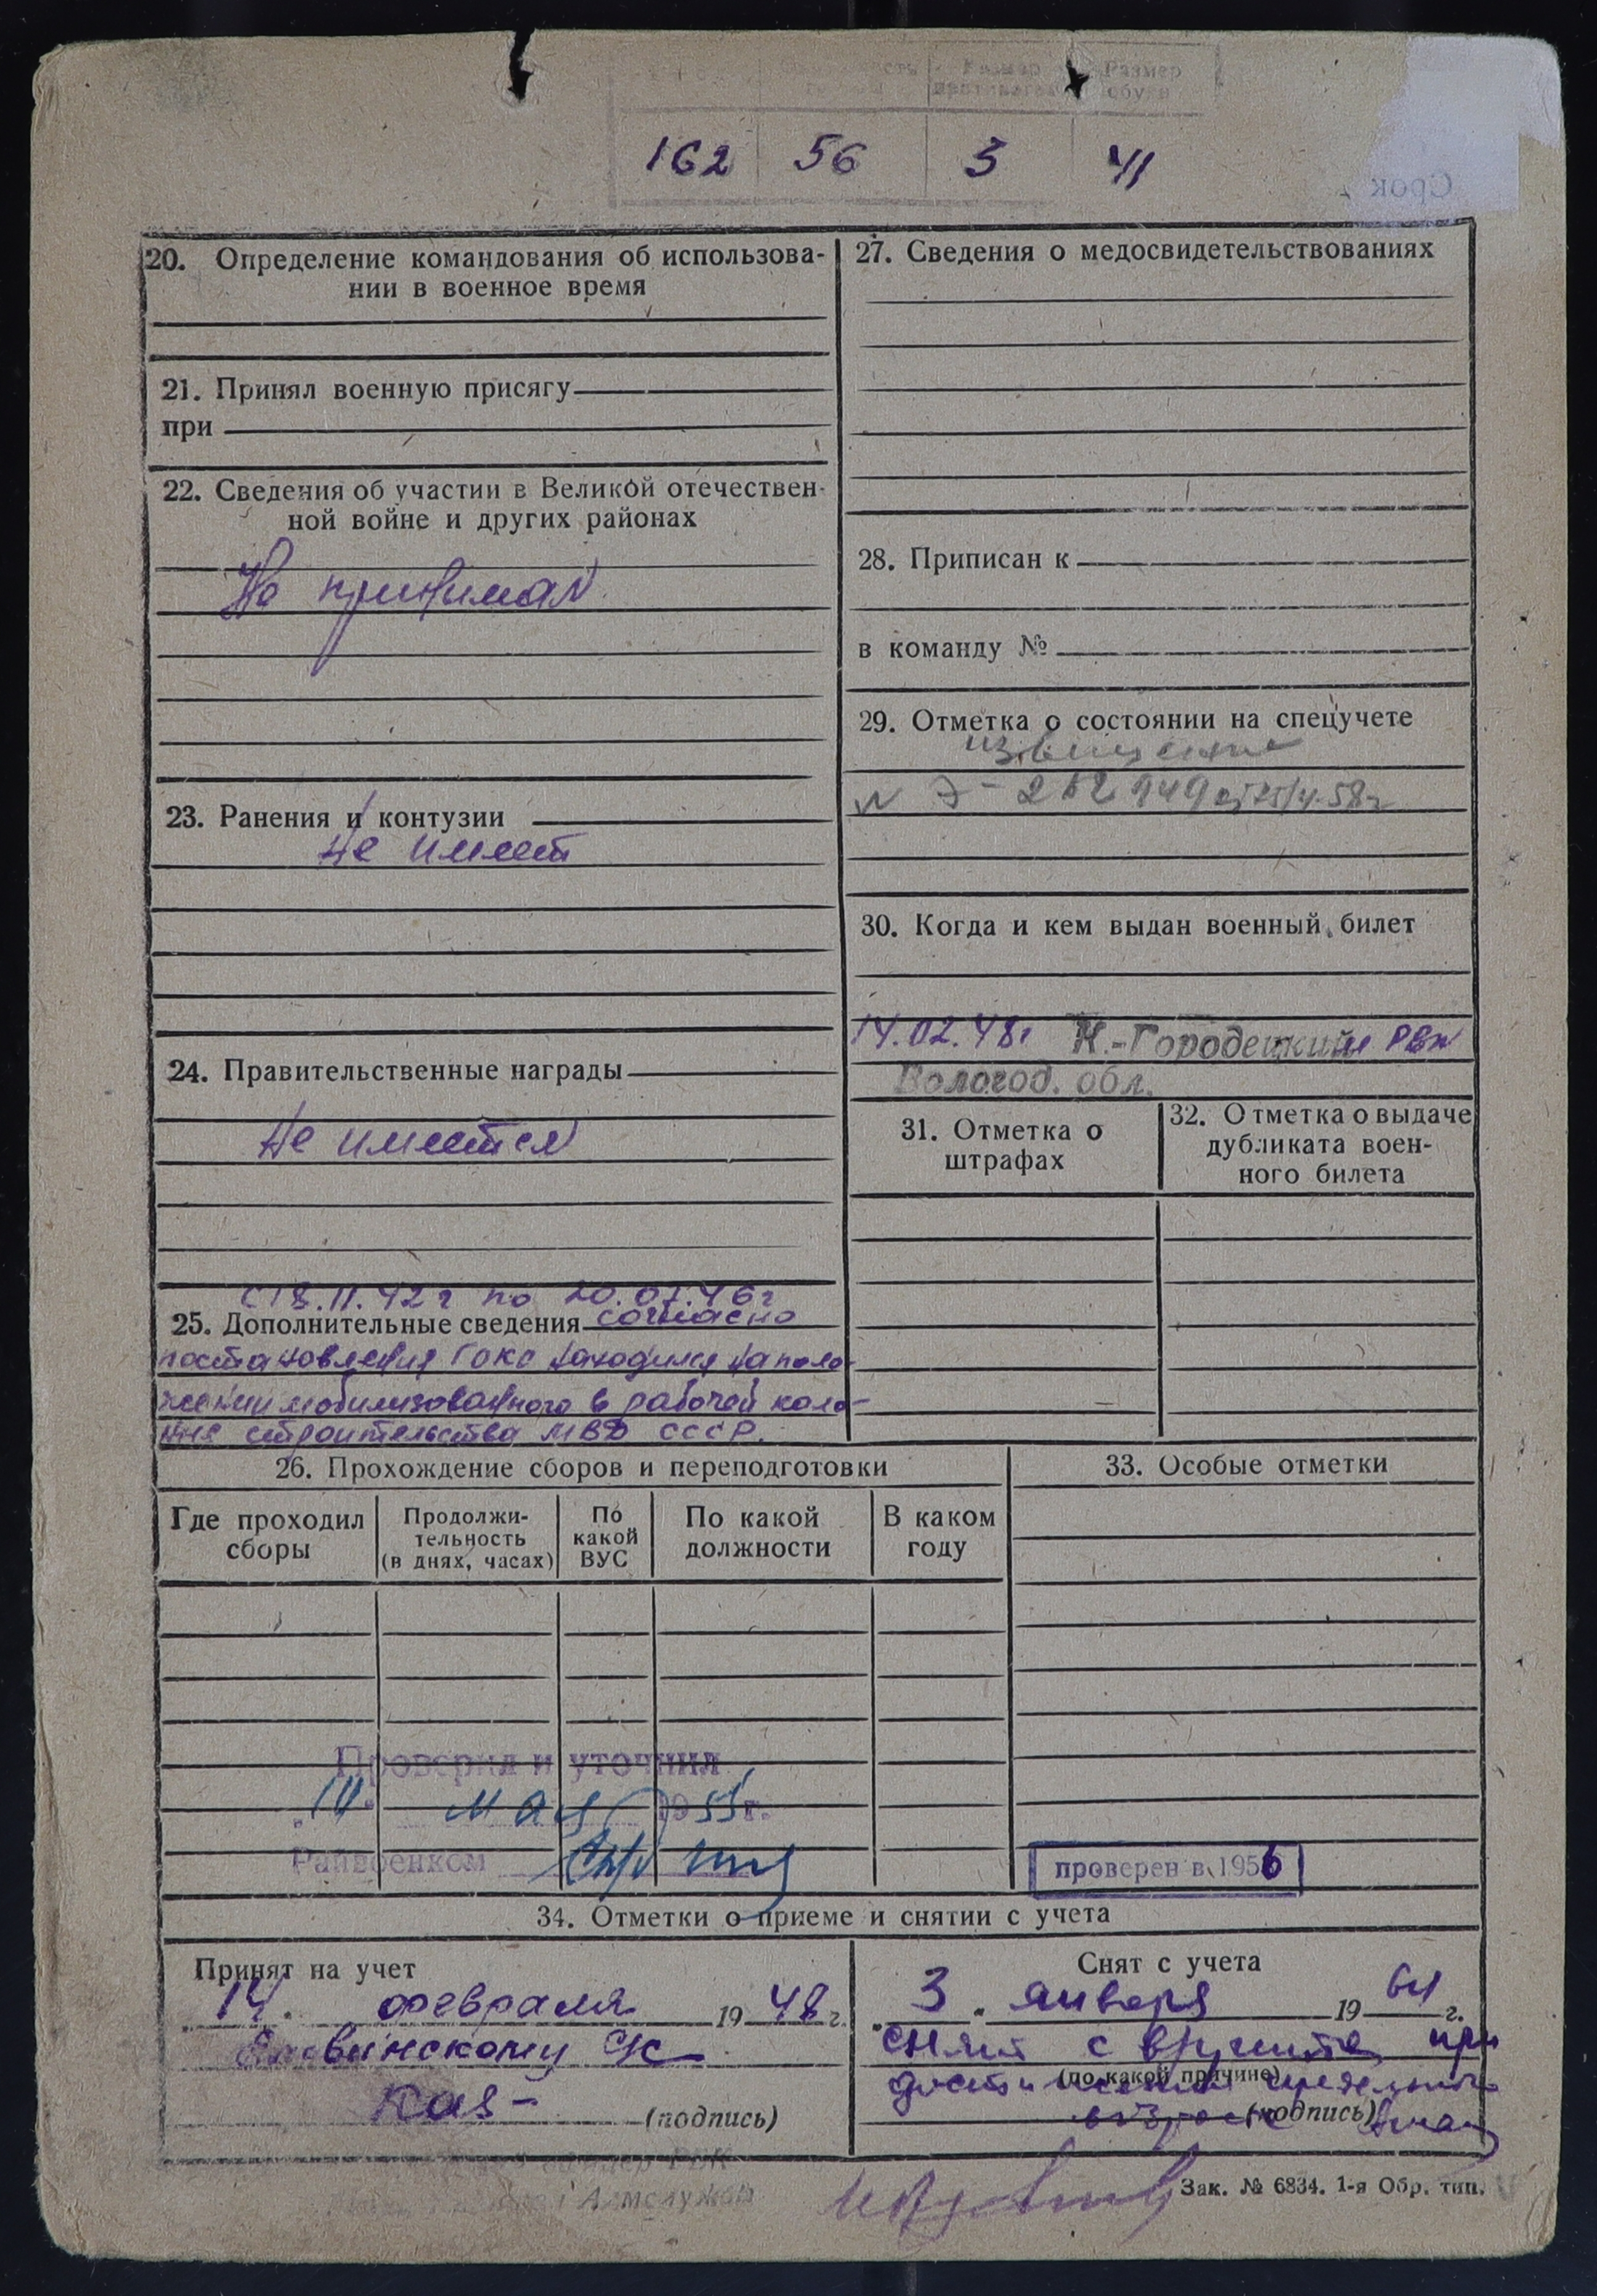 Размер
Размер
обуви
162 56 3 41
Срок
20. Определение командования об использова-
нии в военное время
21. Принял военную присягу
при
22. Сведения об участии в Великой отечествен-
ной войне и других районах
Не принимал
23. Ранения и контузии
не имеет
24. Правительственные награды
Не имеется
с 18.11.42 г по 20.07.46 г
25. Дополнительные сведения согласно
постановления ГОКО находился на поло-
жении мобилизованного в рабочей коло-
нне строительства МВД СССР.
27. Сведения о медосвидетельствованиях
28. Приписан к
в команду №
29. Отметка о состоянии на спецучете
извещение
30. Когда и кем выдан военный билет
14.02.48г К.-Городецким РВК
Вологод. обл.
31. Отметка о
штрафах
32. Отметка о выдаче
дубликата воен-
ного билета
26. Прохождение сборов и переподготовки
Где проходил
сборы
Продолжи-
тельность
(в днях, часах)
По
какой
ВУС
По какой
должности
В каком
году
33. Особые отметки
Проверил и уточнил
мая 1955 г.
Райвоенком
проверен в 1956
34. Отметки о приеме и снятии с учета
Принят на учет
14. февраля 1948 г.
(подпись)
Снят с учета
3 января 1964 г.
снят с в/учета при
(по какой причине)
достижении предельного
возраста (подпись)
Зак. № 6834. 1-я Обр. тип.